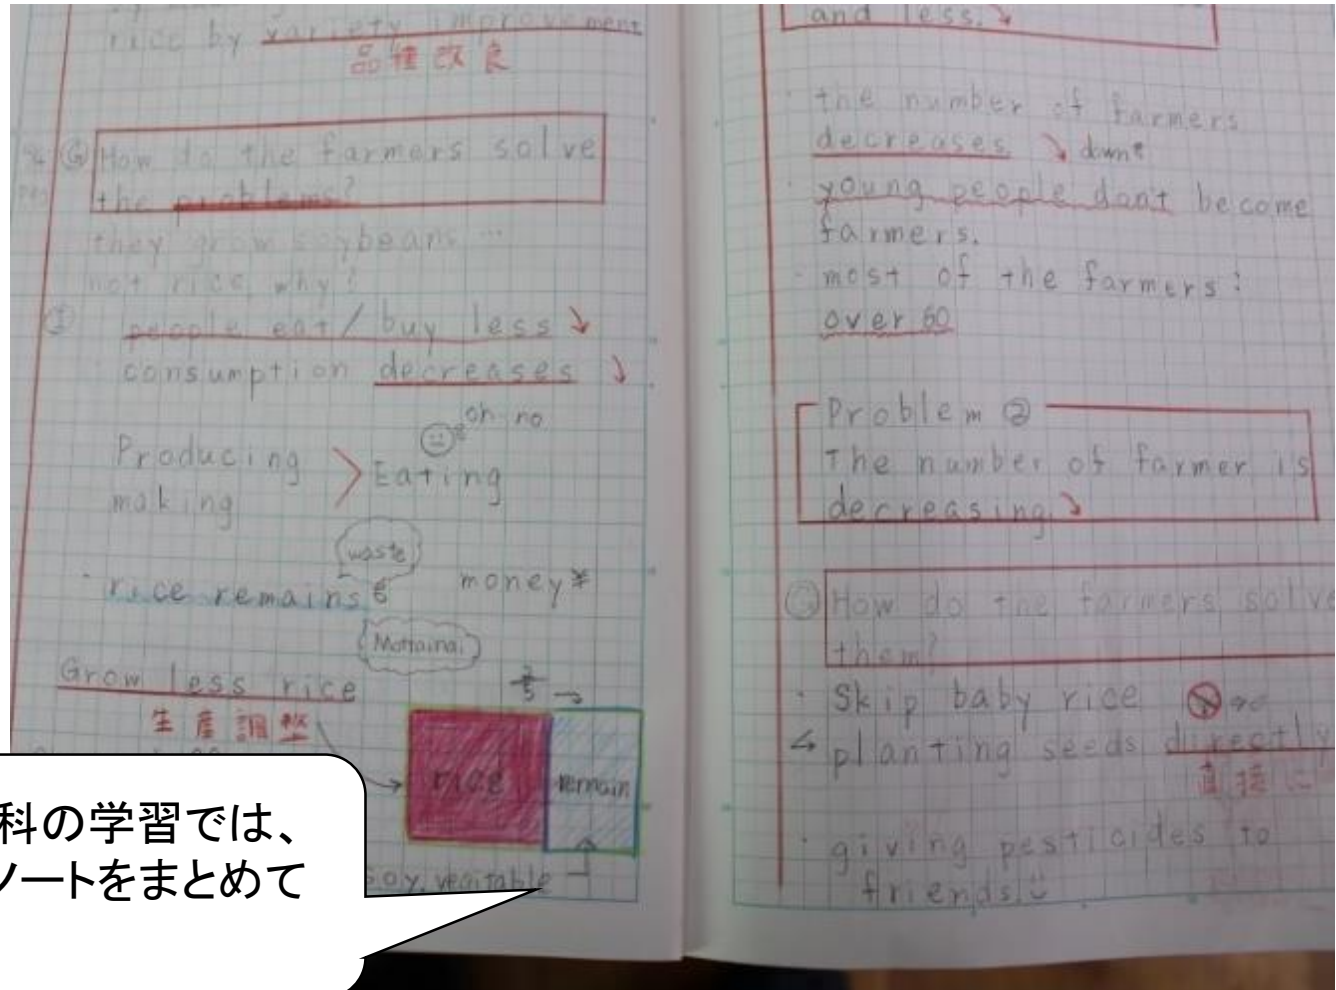 rice by variety improvement
品種改良
G How do the farmers solve
the problems?
they grow soybeans …
not rice, why?
I people eat / buy less ↘
consumption decreases ↘
oh no
Producing > Eating
making
waste
・rice remains money ¥
Mottainai
Grow less rice
生産調整
2/5 →
rice remain
soy, vegitable
科の学習では、
ノートをまとめて
and less. ↘
・the number of farmers
decreases. ↘ down
・young people don't become
farmers.
・most of the farmers:
over 60
Problem ②
The number of farmer is
decreasing. ↘
G How do the farmers solve
them?
・Skip baby rice
planting seeds directly
直接に
・giving pesticides to
friends